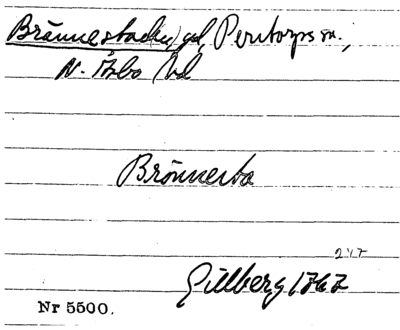 Brännestad(en) gd, Perstorps sn.,
N. Åsbo hd
Brönnesta
247
Gillberg 1767
Nr 5500.